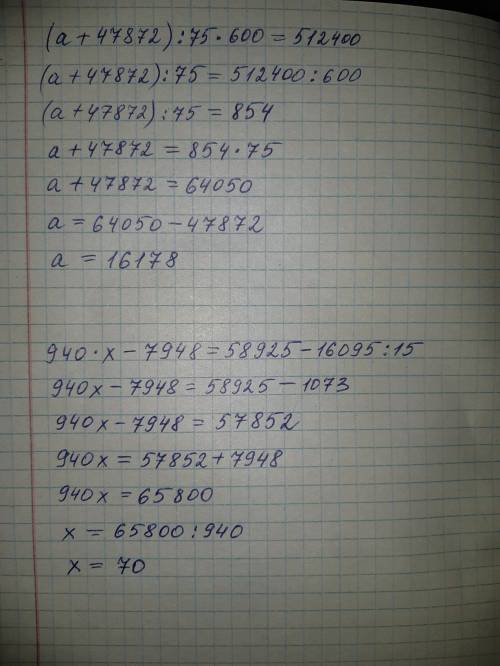 (a + 47872) : 75 · 600 = 512400
(a + 47872) : 75 = 512400 : 600
(a + 47872) : 75 = 854
a + 47872 = 854 · 75
a + 47872 = 64050
a = 64050 - 47872
a = 16178
940 · x - 7948 = 58925 - 16095 : 15
940x - 7948 = 58925 - 1073
940x - 7948 = 57852
940x = 57852 + 7948
940x = 65800
x = 65800 : 940
x = 70